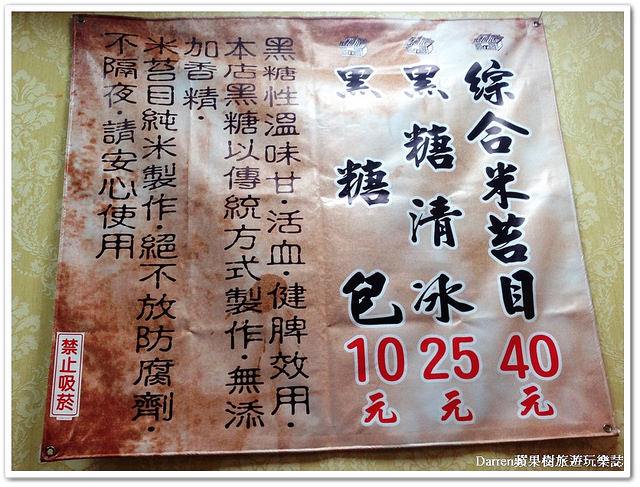 綜合米苔目40元
黑糖清冰25元
黑糖包10元
黑糖性溫味甘·活血·健脾效用·
本店黑糖以傳統方式製作·無添
加香精·
米苔目純米製作·絕不放防腐劑·
不隔夜·請安心使用
禁止吸菸
Darren蘋果樹旅遊玩樂誌